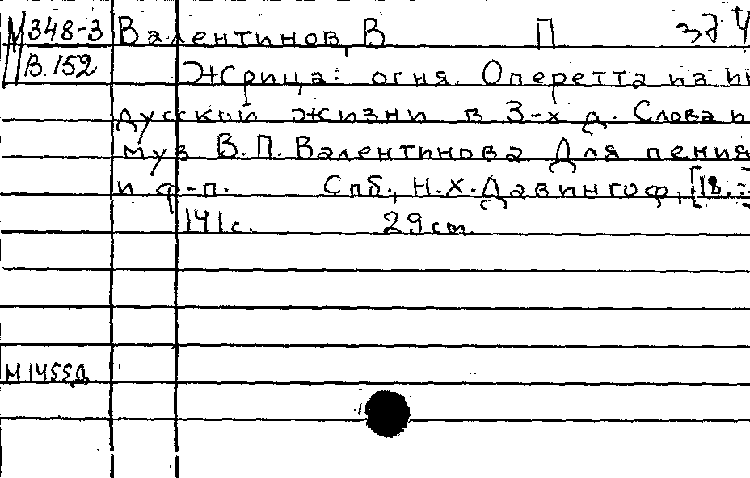 М 348-3 Валентинов, В П
В.152 Жрица: огня. Оперетта из ин
дусской жизни в 3-х д. Слова и
муз В.П. Валентинова Для пения
и ф-п. Спб., Н.Х. Давингоф, [18.
141 с. 29 ст.
М 1455д